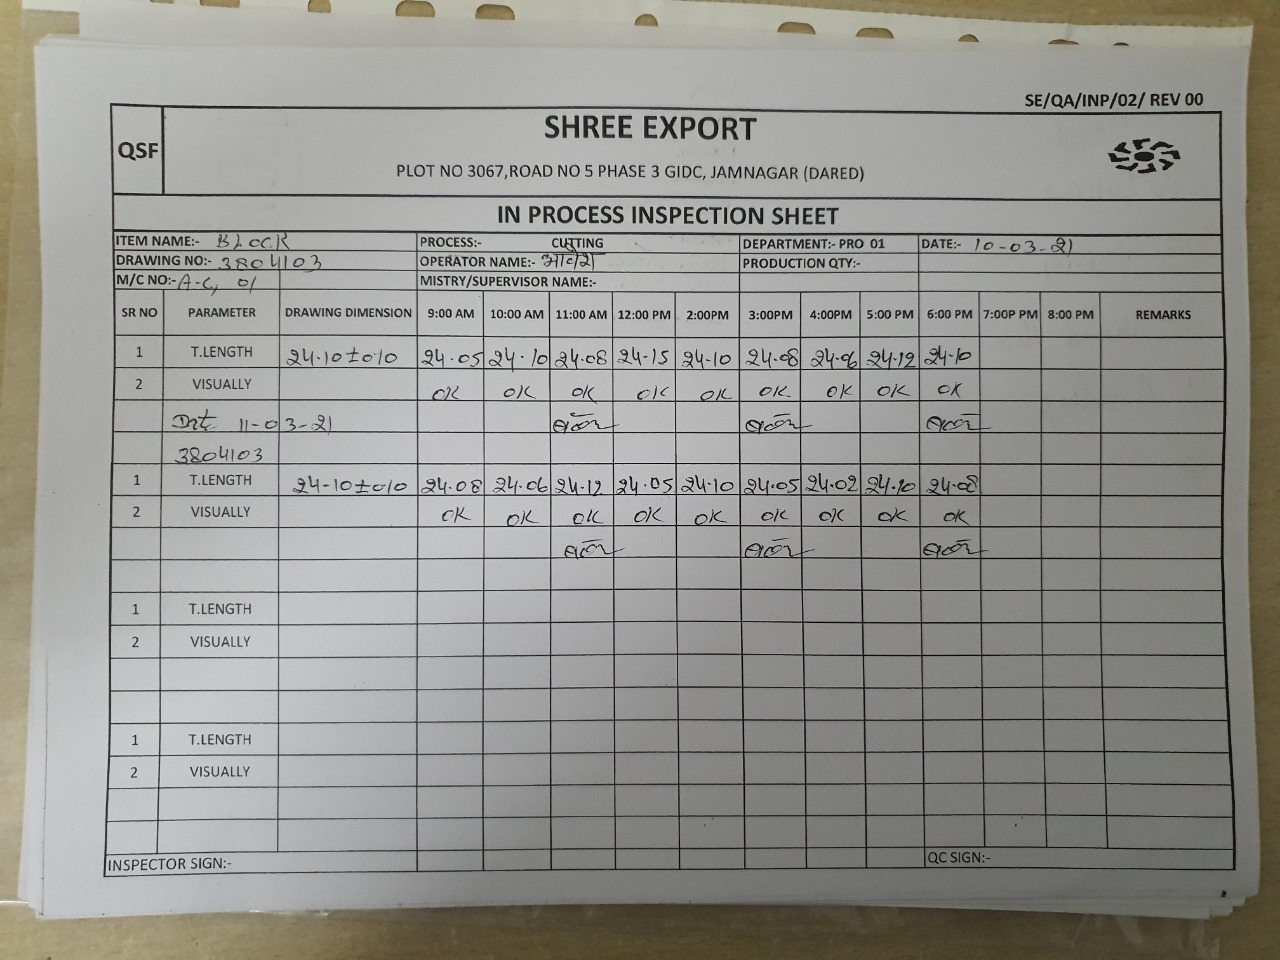 SE/QA/INP/02/ REV 00
QSF
SHREE EXPORT
PLOT NO 3067,ROAD NO 5 PHASE 3 GIDC, JAMNAGAR (DARED)
IN PROCESS INSPECTION SHEET
ITEM NAME:- BLOCK PROCESS:- CUTTING DEPARTMENT:- PRO 01 DATE:- 10-03-21
DRAWING NO:- 3804103 OPERATOR NAME:- PRODUCTION QTY:-
M/C NO:- A-C, 01 MISTRY/SUPERVISOR NAME:-
SR NO PARAMETER DRAWING DIMENSION 9:00 AM 10:00 AM 11:00 AM 12:00 PM 2:00PM 3:00PM 4:00PM 5:00 PM 6:00 PM 7:00P PM 8:00 PM REMARKS
1 T.LENGTH 24.10±0.10 24.05 24.10 24.08 24.15 24.10 24.08 24.06 24.12 24.10
2 VISUALLY OK OK OK OK OK OK OK OK OK
11-03-21
3804103
1 T.LENGTH 24.10±0.10 24.08 24.06 24.12 24.05 24.10 24.05 24.02 24.10 24.08
2 VISUALLY OK OK OK OK OK OK OK OK OK
1 T.LENGTH
2 VISUALLY
1 T.LENGTH
2 VISUALLY
INSPECTOR SIGN:- QC SIGN:-